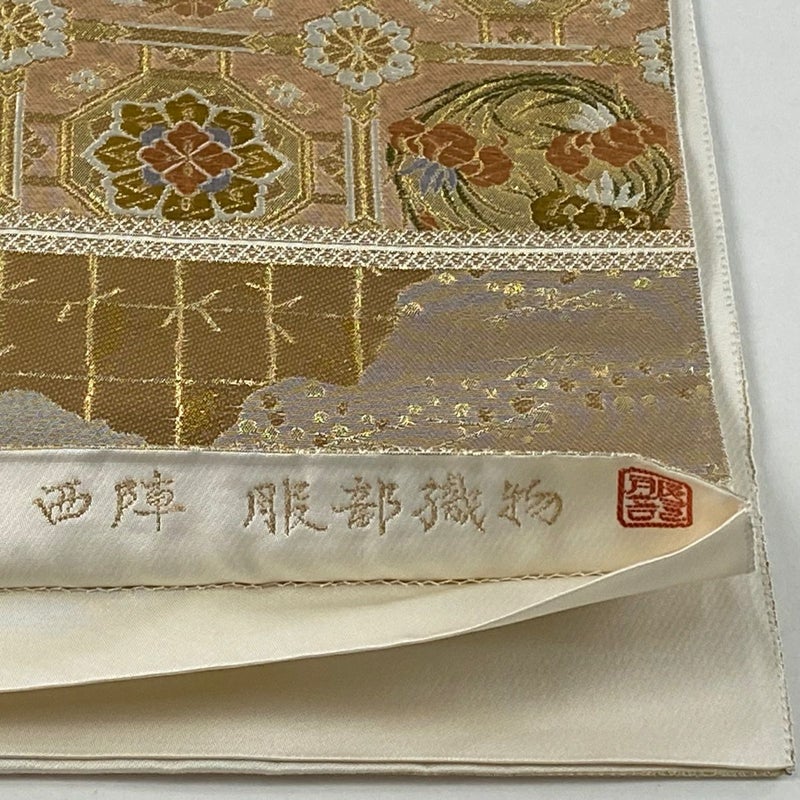 西陣 服部織物
服部